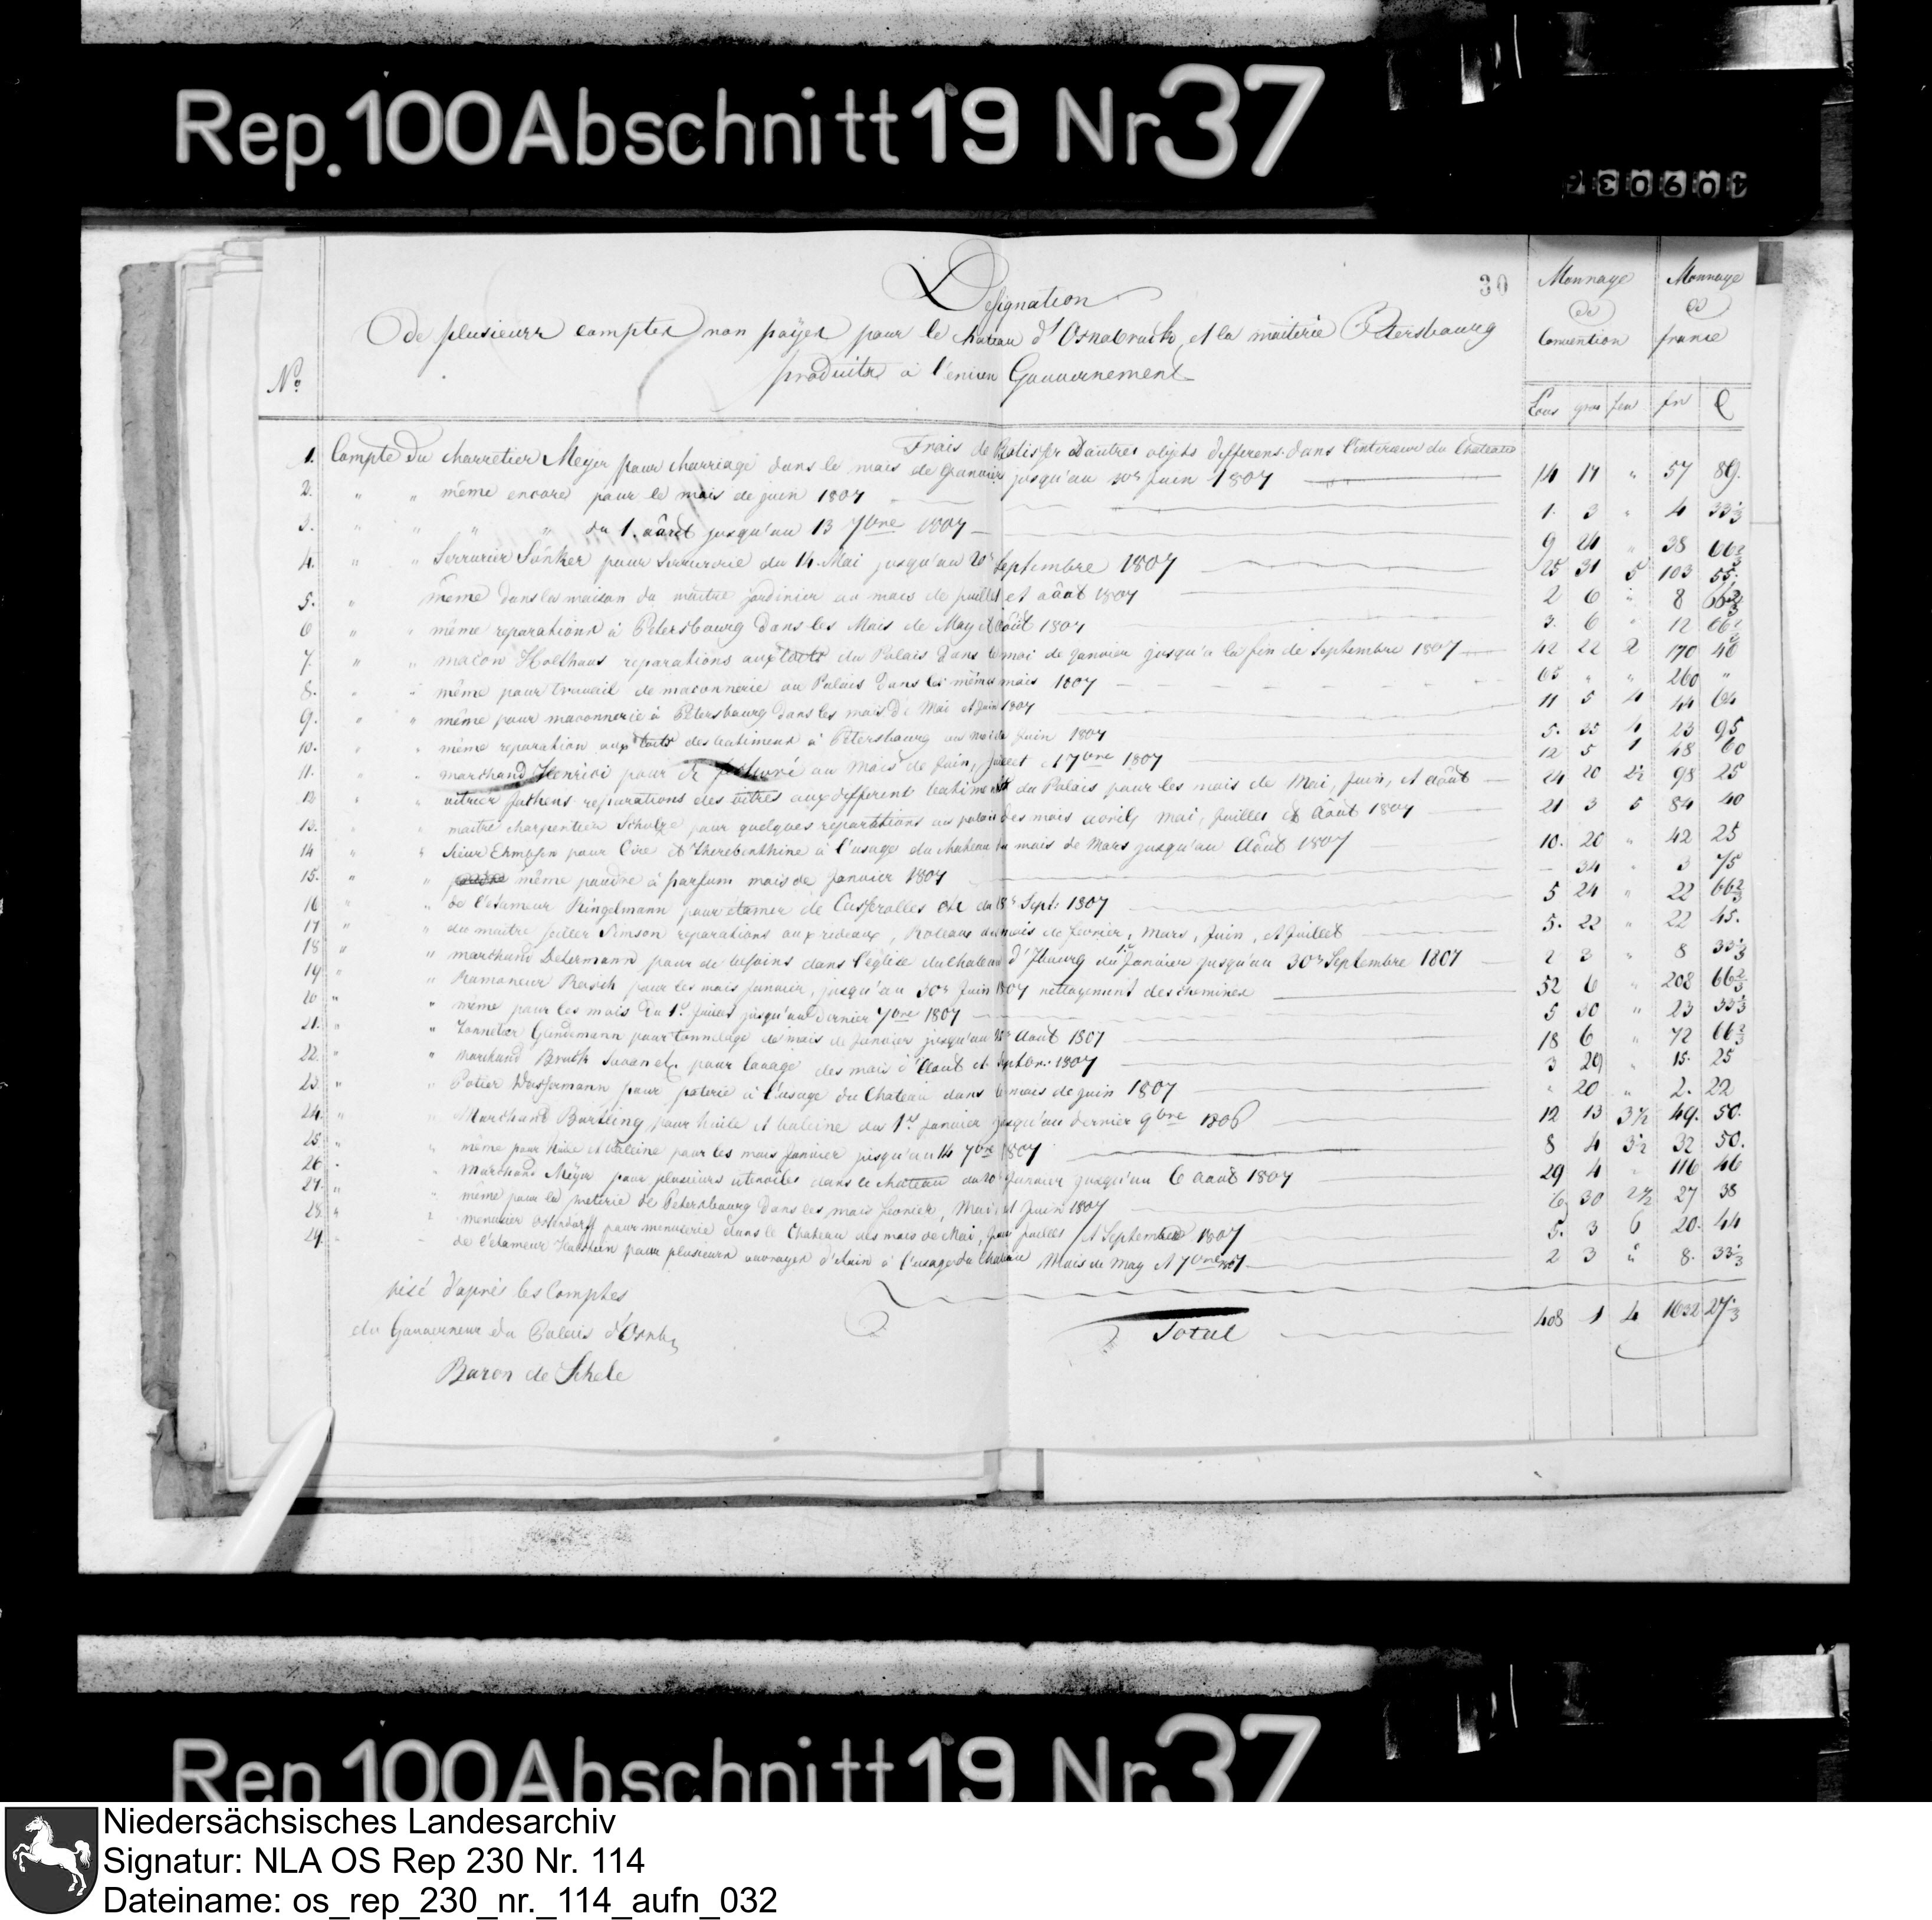 Rep. 100 Abschnitt 19 Nr 37
30
Designation
de plusieurs comptes non payés pour le chateau d'Osnabruck, et la maiterie Petersbourg
produits à l'encien Gouvernement
No.
Monnaye de Convention
Monnaye de france
Ecus gros fen fr C
Frais de et d'autres objets differens dans l'interieur du Chateau
1. Compte du charretier Meyer pour charriage dans le mois de Janvier jusqu'au 30r Juin 1807 14 17 " 57 89.
2. " " même encore pour le mois de juin 1807 1. 3 " 4 33 1/3
3. " " " " du 1. aâut jusqu'au 13 7bre 1807 9 24 " 38 66 2/3
4. " " Serrurier Sünker pour Serrurerie du 14. Mai jusqu'au 20r Septembre 1807 25 31 5 103 55.
5. " même dans la maison du maitre jardinier au mois de juillet et aâut 1807 2 6 " 8 66 2/3
6 " " même reparations à Petersbourg dans les Mois de May et Août 1807 3. 6 " 12 66 2/3
7. " " macon Holthaus reparations aux toits du Palais dans le moi de janvier jusqu'a la fin de Septembre 1807 42 22 2 170 40
8. " " même pour travail de maconnerie au Palais dans les mêmes mois 1807 65 " " 260 "
9. " " même pour maconnerie à Petersbourg dans les mois de Mai et Juin 1807 11 5 4 44 64
10. " même reparation aux toits des batiments à Petersbourg au moi de Juin 1807 5. 35 4 23 95
11. " marchand Henrici pour de au Mois de Juin, Juillet et 7bre 1807 12 5 1 48 60
12 " vitrier Jathens reparations des vitres aux different batiments du Palais pour les mois de Mai, Juin, et Aâut 24 20 2 1/2 98 25
13. " " maitre charpentier Schulze pour quelques reparatitions au palais des mois avril, mai, Juillet et Aâut 1807 21 3 5 84 40
14 " " Sieur Ehmbsen pour Cire et Therebenthine à l'usage du chateau du mois de Mars jusqu'au Aâut 1807 10. 20 " 42 25
15. " " même poudre à parfum mois de Janvier 1807 – 34 " 3 75
16 " " de l'etameur Ringelmann pour etamer de Casserolles etc du 18r Sept: 1807 5 24 " 22 66 2/3
17 " " du maitre Simson reparations aux rideaux, Roleaux du mois de fevrier, Mars, Juin, et Juillet 5. 22 " 22 45.
18 " " marchand Determann pour de besoins dans l'eglise du chateau d'Ibourg du 1r Janvier jusqu'au 30r Septembre 1807 2 3 " 8 33 1/3
19 " " Ramoneur Rasch pour les mois Janvier, jusqu'au 30r Juin 1807 nettoyement des cheminée 52 6 " 208 66 2/3
20 " " même pour les mois du 1r Juillet jusqu'au dernier 7bre 1807 5 30 " 23 33 1/3
21. " " Tonnelier Gendemann pour tonnelage de mois de Janvier jusqu'au Aout 1807 18 6 " 72 66 2/3
22. " " marchand Bruck Savon etc. pour lavage des mois d'Aout et Septbr: 1807 3 29 " 15. 25
23. " " Potier Wassermann pour poterie à l'usage du Chateau dans le mois de Juin 1807 " 20 " 2. 22
24. " " Marchand Bartling pour huile et baleine du 1r Janvier jusqu'au dernier 9bre 1806 12 13 3 1/2 49. 50.
25. " " même pour huile et baleine pour les mois Janvier jusqu'au 14 7bre 1807 8 4 3 1/2 32 50.
26. " Marchand Meyer pour plusieurs utensiles dans le chateau du 10 Janvier jusqu'au 6 aoüt 1807 29 4 " 116 46
27. " " même pour la meterie de Petersbourg dans les mois fevrier, Mai et Juin 1807 6 30 2 1/2 27 38
28. " " menuisier Ostendorff pour menuiserie dans le Chateau des mois de Mai, Juin Juillet, et Septembre 1807 5. 3 6 20. 44
29. " de l'etameur pour plusieurs ouvrages d'etain à l'usage du Chateau Mois de May et 7bre 1807 2 3 " 8. 33 1/3
Total 408 1 4 1632 27 1/3
visé d'après les Comptes
du Gouverneur du Palais d'Osnb.
Baron de Schele
Rep. 100 Abschnitt 19 Nr. 37
Niedersächsisches Landesarchiv
Signatur: NLA OS Rep 230 Nr. 114
Dateiname: os_rep_230_nr._114_aufn_032